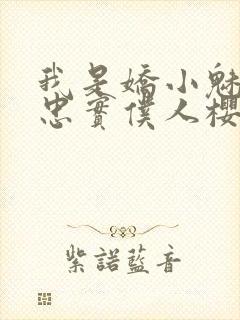 我是嬌小魅
忠實僕人櫻
紫諾藍音